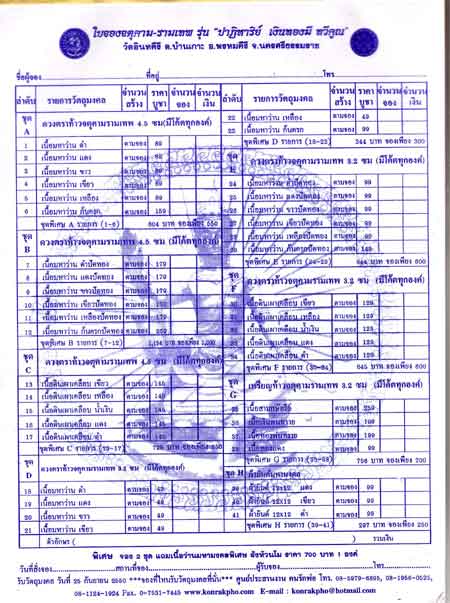 ใบจองจตุคาม-รามเทพ รุ่น "ปาฏิหาริย์ เงินทองมี ทวีคูณ"
วัดอินทคีรี ต.บ้านเกาะ อ.พรหมคีรี จ.นครศรีธรรมราช
ชื่อผู้จอง ที่อยู่ โทร
ลำดับ รายการวัตถุมงคล จำนวนสร้าง ราคาบูชา จำนวนจอง จำนวนเงิน
ชุด A ดวงตราท้าวจตุคามรามเทพ 4.5 ซม (มีโค้ดทุกองค์)
1 เนื้อมหาว่าน ดำ ตามจอง 89
2 เนื้อมหาว่าน แดง ตามจอง 89
3 เนื้อมหาว่าน ขาว ตามจอง 89
4 เนื้อมหาว่าน เขียว ตามจอง 89
5 เนื้อมหาว่าน เหลือง ตามจอง 89
6 เนื้อมหาว่าน ก้นครก ตามจอง 159
ชุดพิเศษ A รายการ (1-6) 604 บาท จองเพียง 550
ชุด B ดวงตราท้าวจตุคามรามเทพ 4.5 ซม (มีโค้ดทุกองค์)
7 เนื้อมหาว่าน ดำปัดทอง ตามจอง 179
8 เนื้อมหาว่าน แดงปัดทอง ตามจอง 179
9 เนื้อมหาว่าน ขาวปัดทอง ตามจอง 179
10 เนื้อมหาว่าน เขียวปัดทอง ตามจอง 179
11 เนื้อมหาว่าน เหลืองปัดทอง ตามจอง 179
12 เนื้อมหาว่าน ก้นครกปัดทอง ตามจอง
ชุดพิเศษ B รายการ (7-12) บาท จองเพียง 1,000
ชุด C ดวงตราท้าวจตุคามรามเทพ 4.5 ซม (มีโค้ดทุกองค์)
13 เนื้อดินเผาเคลือบ เขียว ตามจอง 145
14 เนื้อดินเผาเคลือบ เหลือง ตามจอง 145
15 เนื้อดินเผาเคลือบ น้ำเงิน ตามจอง 145
16 เนื้อดินเผาเคลือบ แดง ตามจอง 145
17 เนื้อดินเผาเคลือบ ดำ ตามจอง 145
ชุดพิเศษ C รายการ (13-17) 725 บาท จองเพียง 650
ชุด D ดวงตราท้าวจตุคามรามเทพ 3.2 ซม (มีโค้ดทุกองค์)
18 เนื้อมหาว่าน ดำ ตามจอง 49
19 เนื้อมหาว่าน แดง ตามจอง 49
20 เนื้อมหาว่าน ขาว ตามจอง 49
21 เนื้อมหาว่าน เขียว ตามจอง 49
ตัวอักษร ( ) รวมเงิน
ลำดับ รายการวัตถุมงคล จำนวนสร้าง ราคาบูชา จำนวนจอง จำนวนเงิน
22 เนื้อมหาว่าน เหลือง ตามจอง 49
23 เนื้อมหาว่าน ก้นครก ตามจอง 99
ชุดพิเศษ D รายการ (18-23) 344 บาท จองเพียง 300
ชุด E ดวงตราท้าวจตุคามรามเทพ 3.2 ซม (มีโค้ดทุกองค์)
24 เนื้อมหาว่าน ดำปัดทอง ตามจอง 99
25 เนื้อมหาว่าน แดงปัดทอง ตามจอง 99
26 เนื้อมหาว่าน ขาวปัดทอง ตามจอง 99
27 เนื้อมหาว่าน เขียวปัดทอง ตามจอง 99
28 เนื้อมหาว่าน เหลืองปัดทอง ตามจอง 99
29 เนื้อมหาว่าน ก้นครกปัดทอง ตามจอง 149
ชุดพิเศษ E รายการ (24-29) 644 บาท จองเพียง
ชุด F ดวงตราท้าวจตุคามรามเทพ 3.2 ซม (มีโค้ดทุกองค์)
30 เนื้อดินเผาเคลือบ เขียว ตามจอง 129
31 เนื้อดินเผาเคลือบ เหลือง ตามจอง 129
32 เนื้อดินเผาเคลือบ น้ำเงิน ตามจอง 129
33 เนื้อดินเผาเคลือบ แดง ตามจอง 129
34 เนื้อดินเผาเคลือบ ดำ ตามจอง 129
ชุดพิเศษ F รายการ (30-34) 645 บาท จองเพียง 600
ชุด G เหรียญท้าวจตุคามรามเทพ 3.2 ซม (มีโค้ดทุกองค์)
ตามจอง 259
ตามจอง 199
ตามจอง 199
ตามจอง 99
ชุดพิเศษ G รายการ (35-38) 756 บาท จองเพียง 700
ชุด H
39 ผ้ายันต์ 12x12 แดง ตามจอง 99
40 ผ้ายันต์ 12x12 เขียว ตามจอง 99
41 ผ้ายันต์ 12x12 ดำ ตามจอง 99
ชุดพิเศษ H รายการ (39-41) 297 บาท จองเพียง 250
พิเศษ จอง 2 ชุด แถมเนื้อว่านมหามงคลพิเศษ ฝังหัวนโม ราคา 700 บาท 1 องค์
วันที่สั่งจอง สถานที่จอง ผู้รับจอง โทร
รับวัตถุมงคล วันที่ 25 กันยายน 2550 ***จองที่ไหนรับวัตถุมงคลที่นั้น*** ศูนย์ประสานงาน ฅนรักพ่อ โทร. 08-5979-6895, 08-1956-0525,
08-1124-1924 Fax. 0-7531-7445 www.konrakpho.com E-mail : konrakpho@hotmail.com